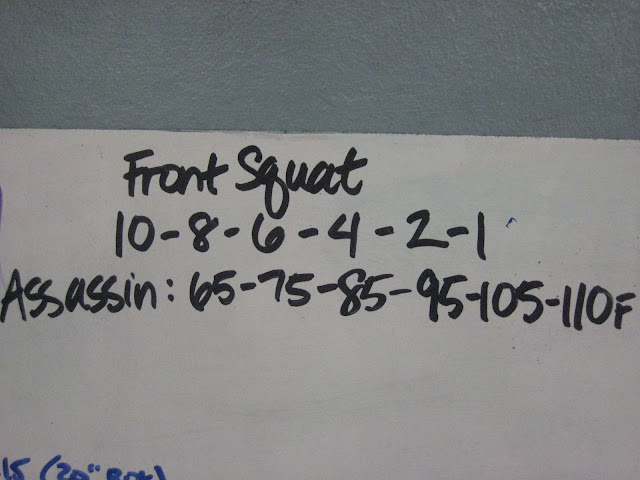 Front Squat
10-8-6-4-2-1
Assassin: 65-75-85-95-105-110F
15 (20" Box)